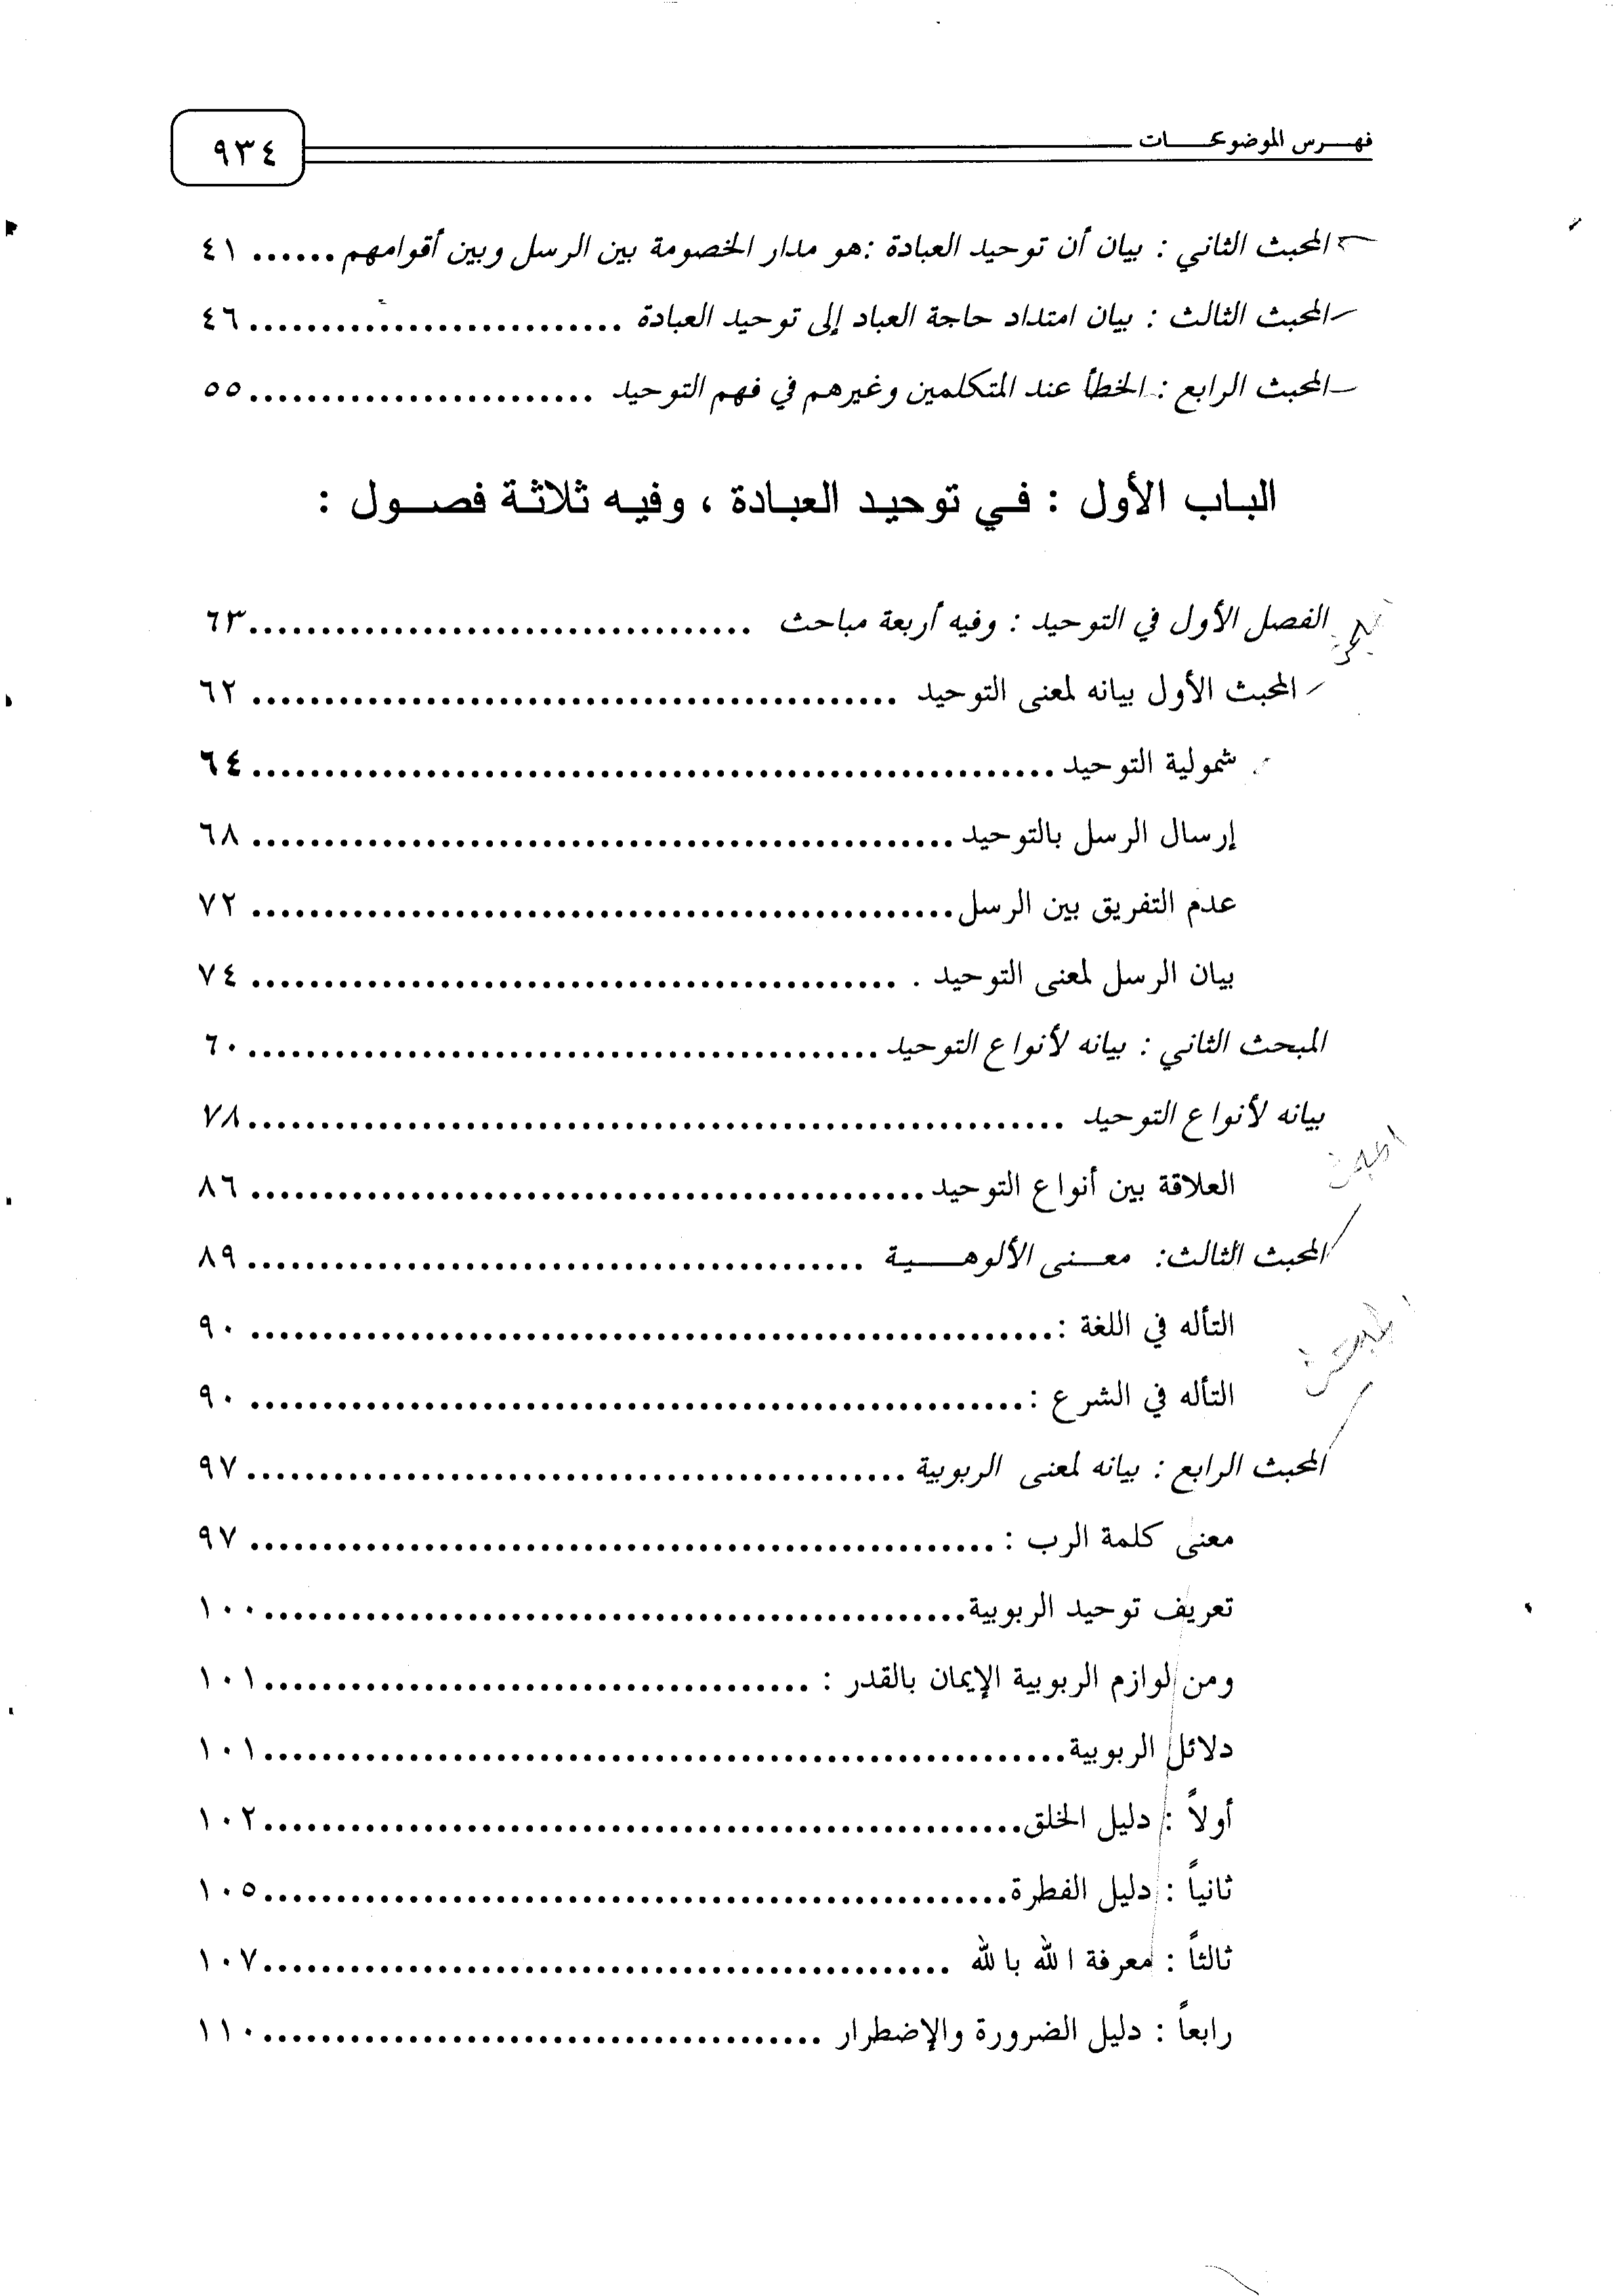 فهرس الموضوعات
٩٣٤
المحبث الثاني : بيان أن توحيد العبادة :هو مدار الخصومة بين الرسل وبين أقوامهم ...... ٤١
المحبث الثالث : بيان امتداد حاجة العباد إلى توحيد العبادة .......................... ٤٦
المحبث الرابع : الخطأ عند المتكلمين وغيرهم في فهم التوحيد ........................ ٥٥
الباب الأول : في توحيد العبادة ، وفيه ثلاثة فصول :
الفصل الأول في التوحيد : وفيه أربعة مباحث ................................... ٦٣
المحبث الأول بيانه لمعنى التوحيد ............................................. ٦٢
شمولية التوحيد ........................................................ ٦٤
إرسال الرسل بالتوحيد ................................................. ٦٨
عدم التفريق بين الرسل ................................................. ٧٢
بيان الرسل لمعنى التوحيد . ............................................. ٧٤
المبحث الثاني : بيانه لأنواع التوحيد ............................................ ٦٠
بيانه لأنواع التوحيد ......................................................... ٧٨
العلاقة بين أنواع التوحيد ............................................... ٨٦
المحبث الثالث: معنى الألوهية ........................................... ٨٩
التأله في اللغة : ........................................................ ٩٠
التأله في الشرع : ...................................................... ٩٠
المحبث الرابع : بيانه لمعنى الربوبية .............................................. ٩٧
معنى كلمة الرب : .................................................... ٩٧
تعريف توحيد الربوبية ................................................. ١٠٠
ومن لوازم الربوبية الإيمان بالقدر : ...................................... ١٠١
دلائل الربوبية ........................................................ ١٠١
أولاً : دليل الخلق ..................................................... ١٠٢
ثانياً : دليل الفطرة .................................................... ١٠٥
ثالثاً : معرفة الله بالله ................................................ ١٠٧
رابعاً : دليل الضرورة والإضطرار ....................................... ١١٠